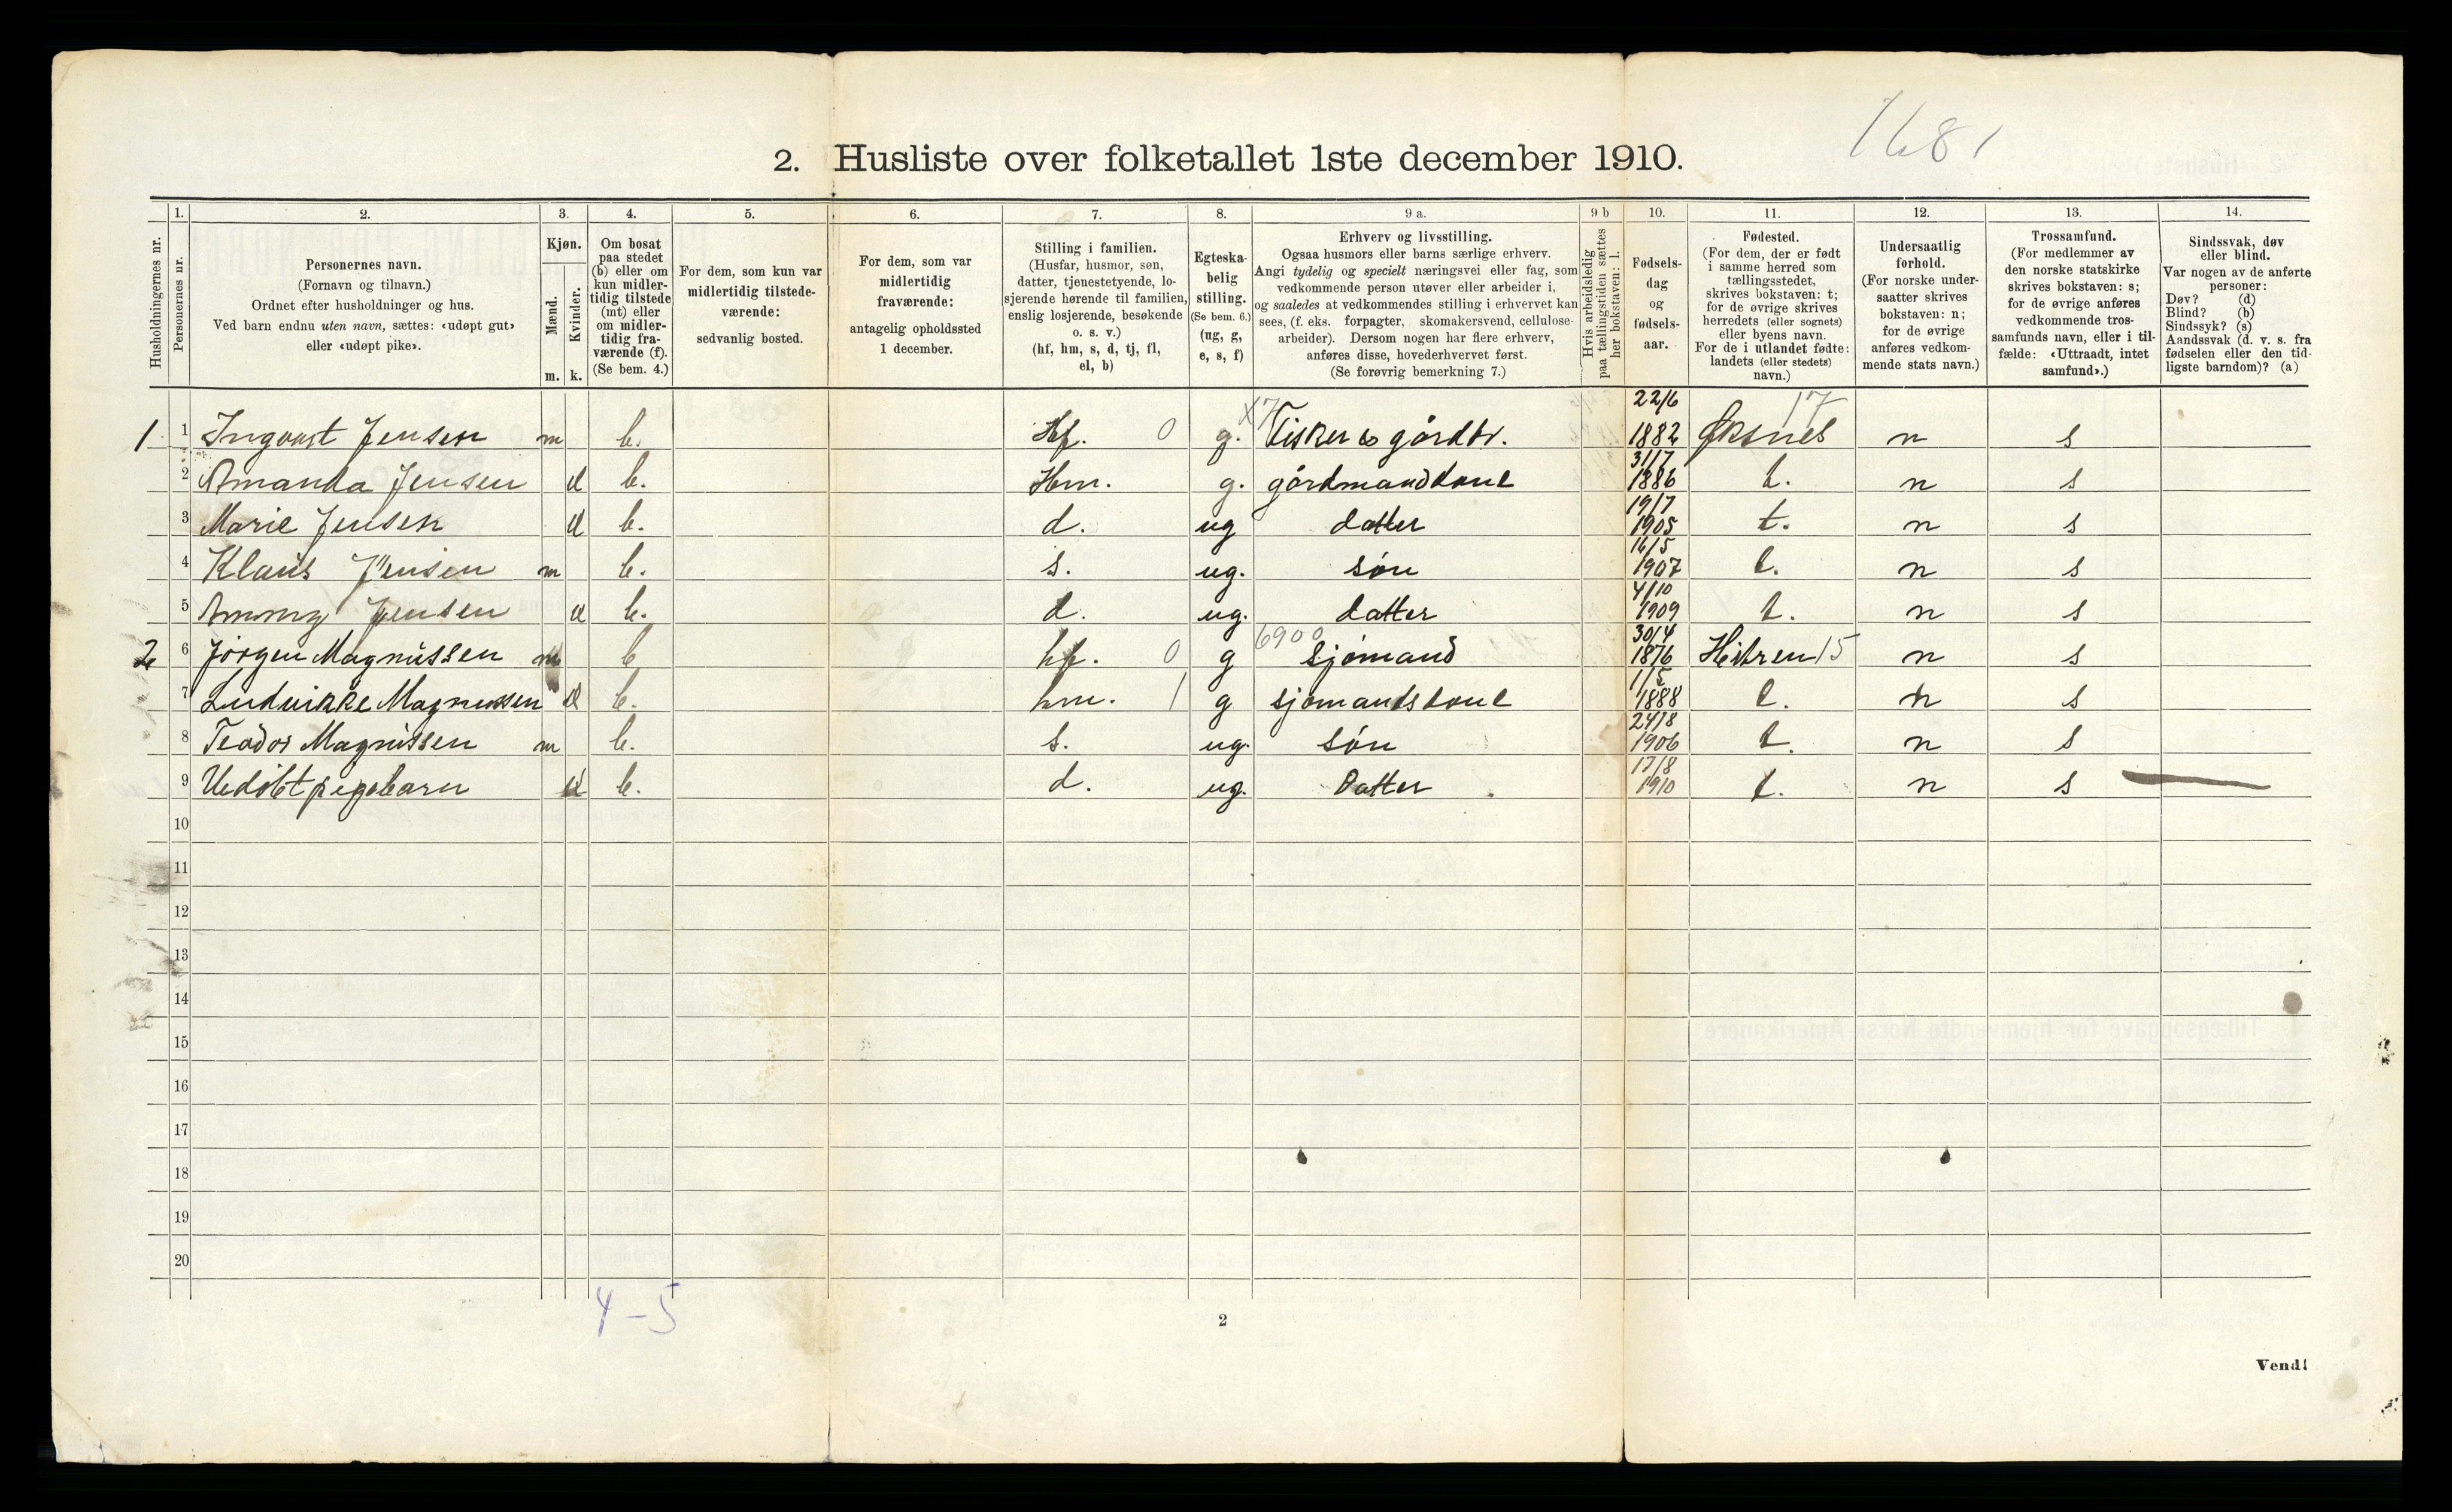 1681
2. Husliste over folketallet 1ste december 1910.
Husholdningernes nr.
1.
Personernes nr.
2.
Personernes navn.
(Fornavn og tilnavn.)
Ordnet efter husholdninger og hus.
Ved barn endnu uten navn, sættes: «udøpt gut»
eller «udøpt pike».
3.
Kjøn.
Mænd.
Kvinder.
m. k.
4.
Om bosat
paa stedet
(b) eller om
kun midler-
tidig tilstede
(mt) eller
om midler-
tidig fra-
værende (f).
(Se bem. 4.)
5.
For dem, som kun var
midlertidig tilstede-
værende:
sedvanlig bosted.
6.
For dem, som var
midlertidig
fraværende:
antagelig opholdssted
1 december.
7.
Stilling i familien.
(Husfar, husmor, søn,
datter, tjenestetyende, lo-
sjerende hørende til familien,
enslig losjerende, besøkende
o. s. v.)
(hf, hm, s, d, tj, fl,
el, b)
8.
Egteska-
belig
stilling.
(Se bem. 6.)
(ug, g,
e, s, f)
9 a.
Erhverv og livsstilling.
Ogsaa husmors eller barns særlige erhverv.
Angi tydelig og specielt næringsvei eller fag, som
vedkommende person utøver eller arbeider i,
og saaledes at vedkommendes stilling i erhvervet kan
sees, (f. eks. forpagter, skomakersvend, cellulose-
arbeider). Dersom nogen har flere erhverv,
anføres disse, hovederhvervet først.
(Se forøvrig bemerkning 7.)
9 b
Hvis arbeidsledig
paa tællingstiden sættes
her bokstaven: l.
10.
Fødsels-
dag
og
fødsels-
aar.
11.
Fødested.
(For dem, der er født
i samme herred som
tællingsstedet,
skrives bokstaven: t;
for de øvrige skrives
herredets (eller sognets)
eller byens navn.
For de i utlandet fødte:
landets (eller stedets)
navn.)
12.
Undersaatlig
forhold.
(For norske under-
saatter skrives
bokstaven: n;
for de øvrige
anføres vedkom-
mende stats navn.)
13.
Trossamfund.
(For medlemmer av
den norske statskirke
skrives bokstaven: s;
for de øvrige anføres
vedkommende tros-
samfunds navn, eller i til-
fælde: «Uttraadt, intet
samfund».)
14.
Sindssvak, døv
eller blind.
Var nogen av de anførte
personer:
Døv? (d)
Blind? (b)
Sindssyk? (s)
Aandssvak (d. v. s. fra
fødselen eller den tid-
ligste barndom)? (a)
1 1 Ingvart Jensen m b. Hf. 0 g. X7 Fisker & gårdbr. 22/6 1882 Øksnes 17 n s
2 Amanda Jensen k b. Hm. g. gårdmandkone 31/7 1886 t. n s
3 Marie Jensen k b. d. ug datter 19/7 1905 t. n s
4 Klaus Jensen m b. s. ug. søn 16/5 1907 t. n s
5 Jensen k b. d. ug. datter 4/10 1909 t. n s
2 6 Jørgen Magnussen m b hf. 0 g 6900 Sjømand 30/4 1876 Hitren 15 n s
7 Ludvikke Magnussen k b. hm. 1 g sjømandskone 1/5 1888 t. n s
8 Teodor Magnussen m b. s. ug. søn 24/8 1906 t. n s
9 Uedöbt pigebarn k b. d. ug. Datter 17/8 1910 t. n s
10
11
12
13
14
15
16
17
18
19
20
4-5
2
Vend!